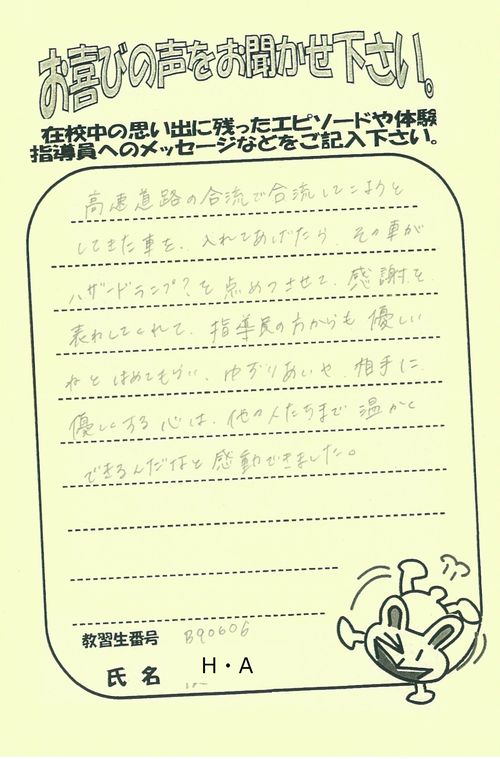 お喜びの声をお聞かせ下さい。
在校中の思い出に残ったエピソードや体験
指導員へのメッセージなどをご記入下さい。
高速道路の合流で合流してこようと
してきた車を、入れてあげたら、その車が
ハザードランプ?を点めつさせて、感謝を
表わしてくれて、指導員の方からも優しい
ねとほめてもらい、ゆずりあいや、相手に
優しくする心は、他の人たちまで温かく
できるんだなと感動できました。
教習生番号 B90606
氏名 H・A